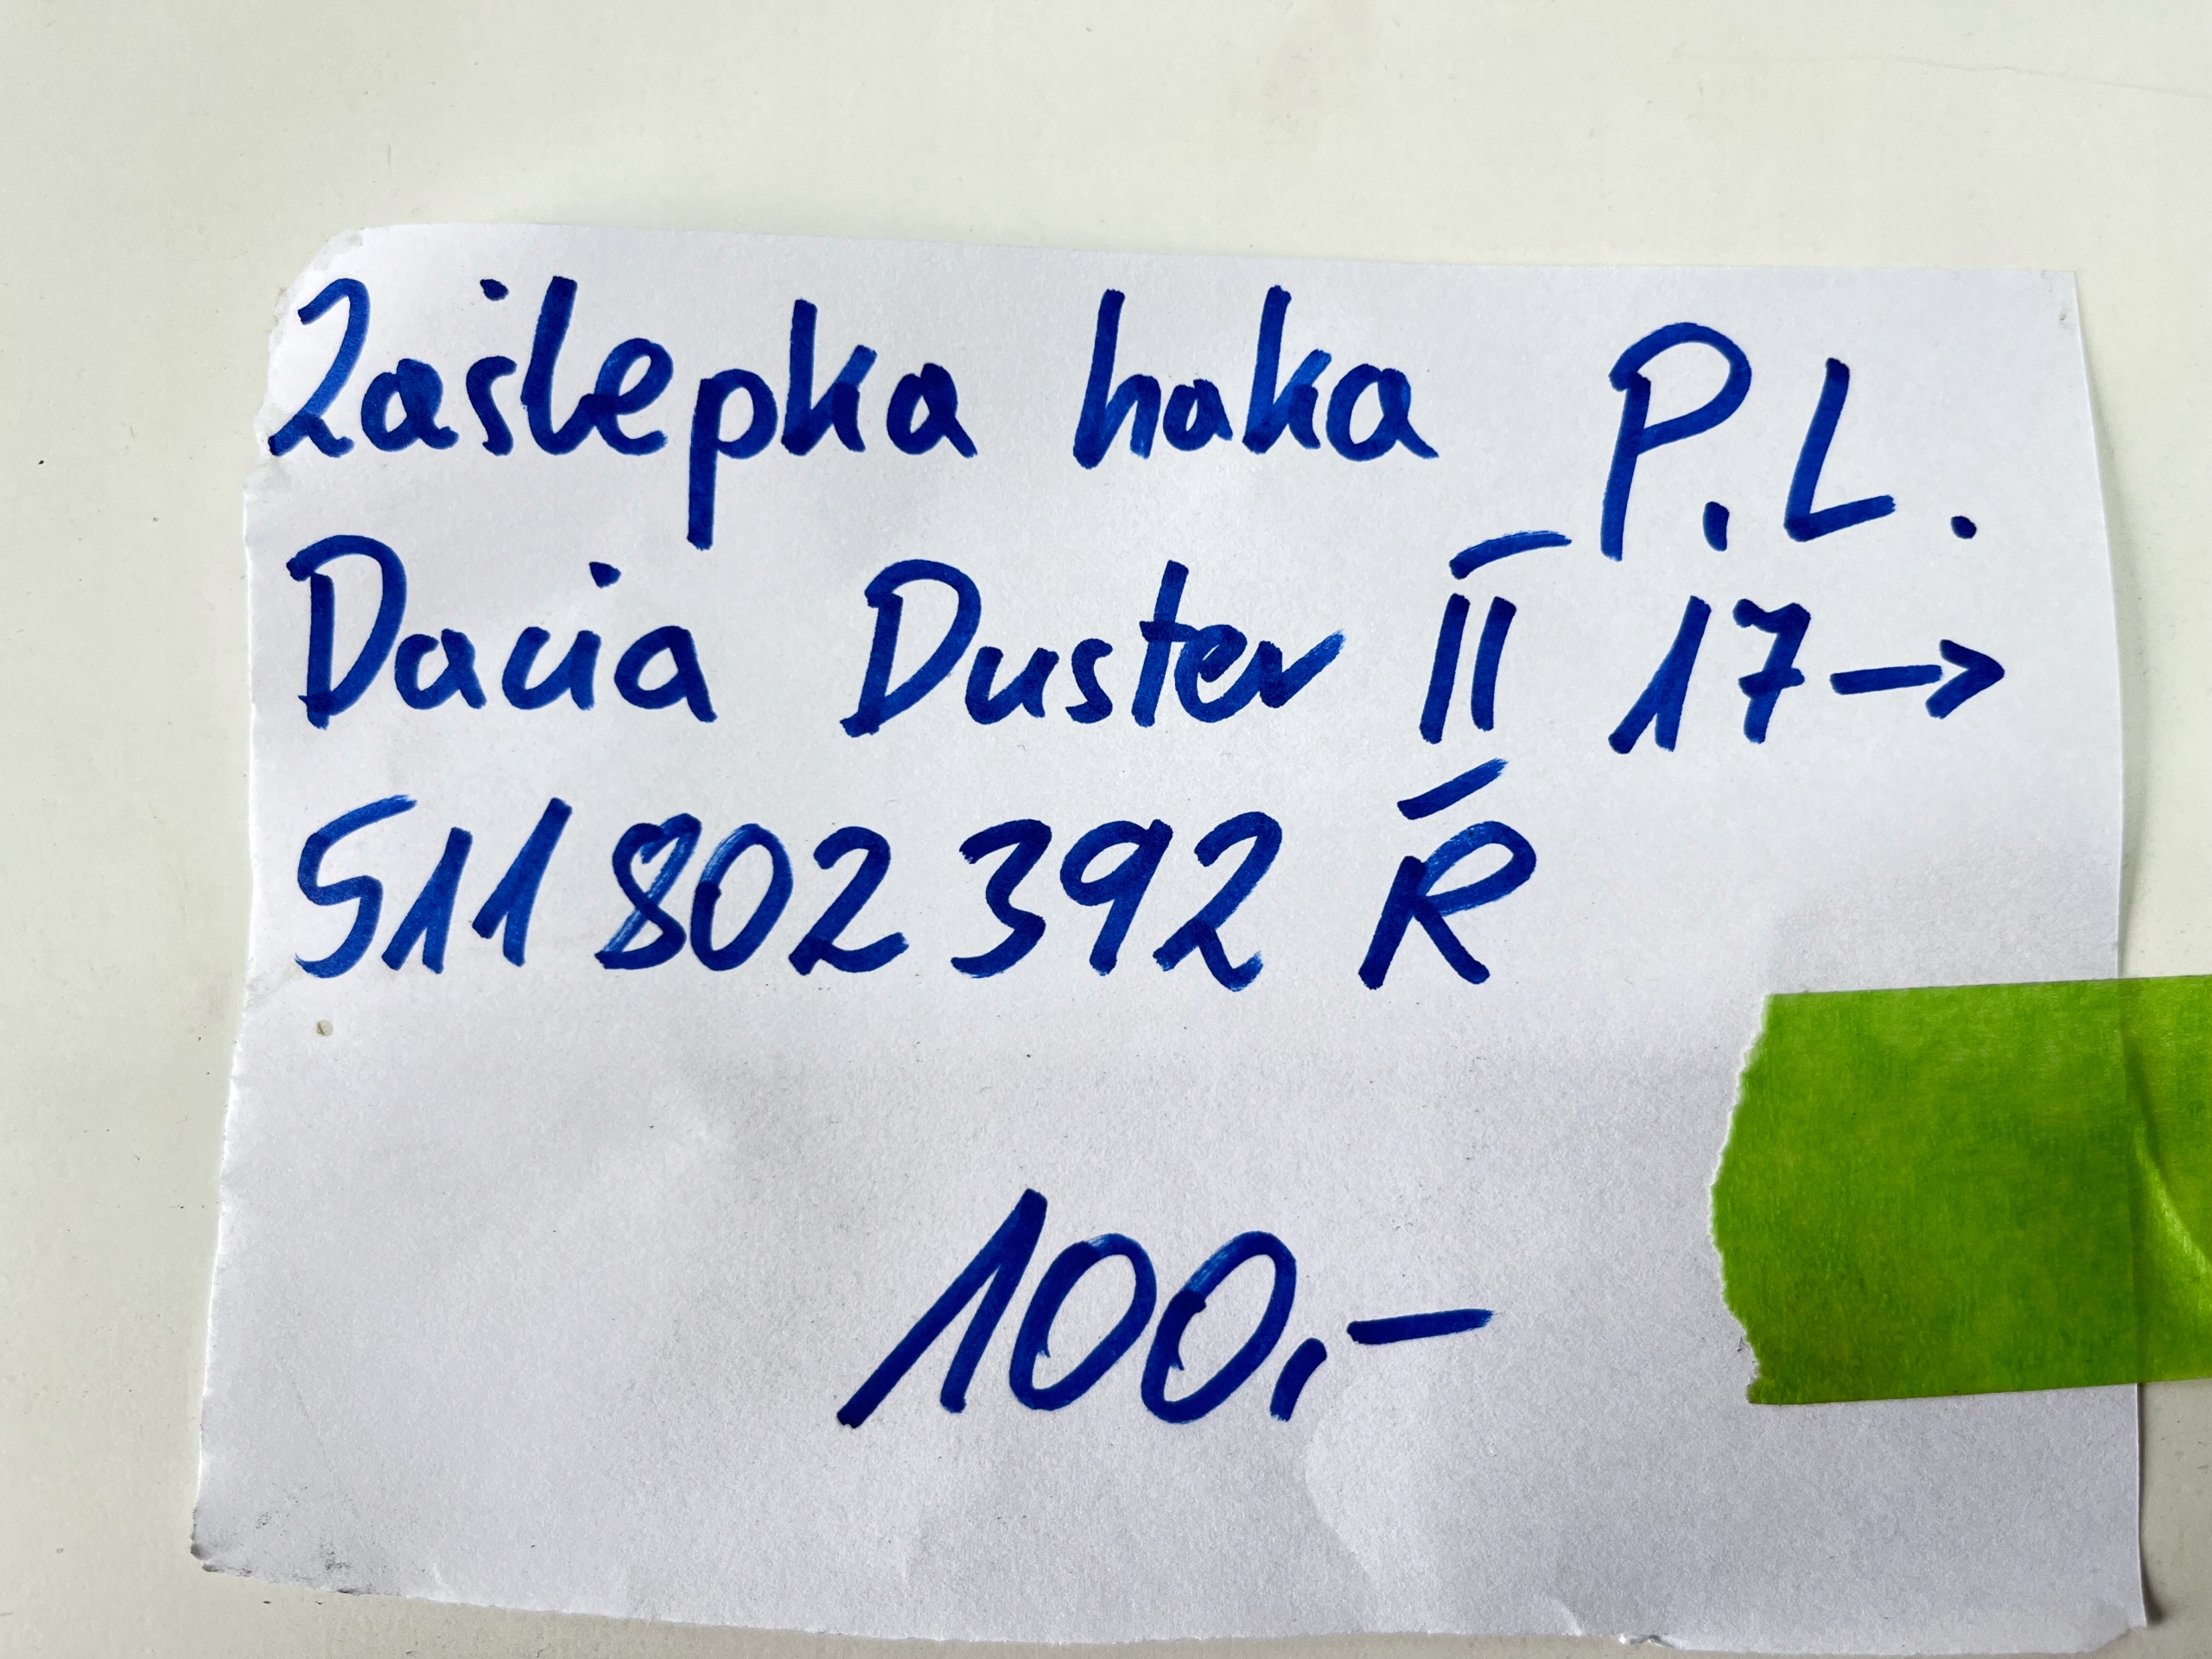 Zaślepka haka P.L.
Dacia Duster II 17→
511 802 392 R
100,-